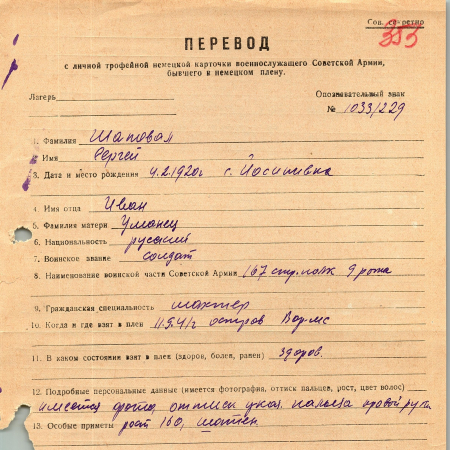 Сов. секретно
353
ПЕРЕВОД
с личной трофейной немецкой карточки военнослужащего Советской Армии,
бывшего в немецком плену.
Лагерь
Опознавательный знак
№ 1033/229
1. Фамилия Шаповал
2. Имя Сергей
3. Дата и место рождения 4.2.1920г с. Йосиповка
4. Имя отца Иван
5. Фамилия матери Уманец
6. Национальность русский
7. Воинское звание солдат
8. Наименование воинской части Советской Армии 167 стр. полк 9 рота
9. Гражданская специальность шахтер
10. Когда и где взят в плен остров Вормс
11. В каком состоянии взят в плен (здоров, болен, ранен) здоров.
12. Подробные персональные данные (имеется фотография, оттиск пальцев, рост, цвет волос)
имеется фото, оттиск указ. пальца правой руки.
13. Особые приметы рост 160, шатен.